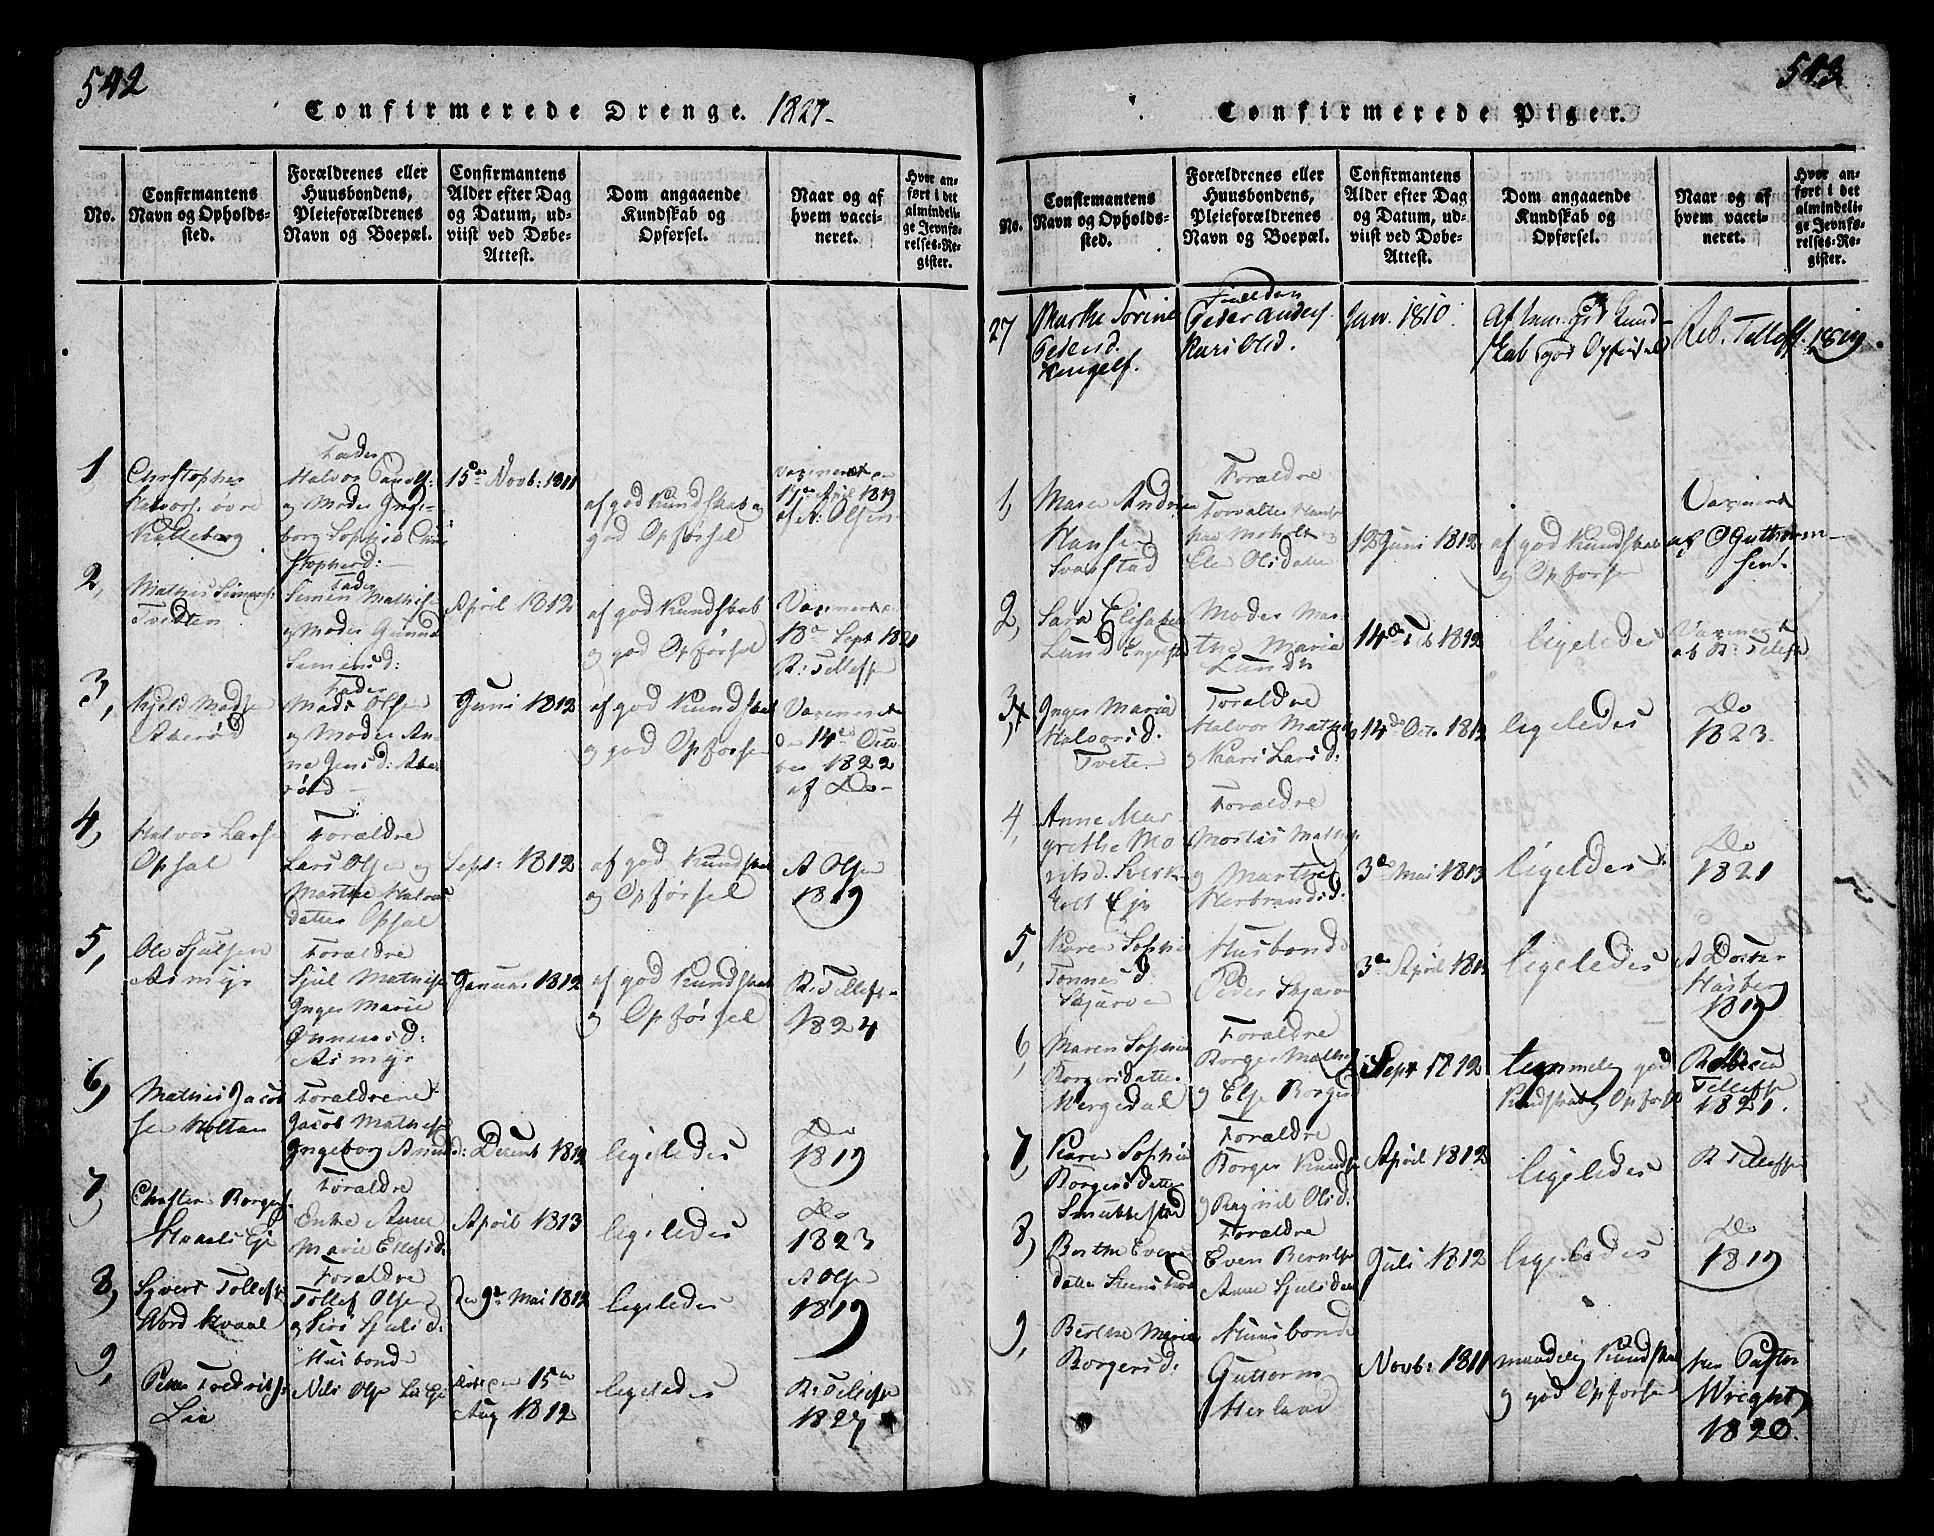 542
Confirmerede Drenge. 1827-
No.
Confirmantens
Navn og Opholds-
sted.
Forældrenes eller
Huusbondens,
Pleieforældrenes
Navn og Boepæl.
Confirmantens
Alder efter Dag
og Datum, ud-
viist ved Døbe-
Attest.
Dom angaaende
Kundskab og
Opførsel.
Naar og af
hvem vacci-
neret.
Hvor an-
ført i det
almindeli-
ge Jevnfø-
relses-Re-
gister.
1
Christopher
Halvors. øvre
Kalleberg
Fader
Halvor
og Moder Inge-
borg Sophie
15de Novb: 1811
af god Kundskab og
god Opførsel
1819
af A: Olsen
2,
Mathis Simens:
Tvedten
Fader
Simen Mathis-
og Moder
Simensd:
April 1812
af god Kundskab
og god Opførsel
18de Sept 1821
R: Tellefse
3,
Kield Madse
Aberød
Fader
Mads Olsen
og Moder An-
ne Jensd: Abe-
rød
Juni 1812
af god Kundskab
og god Opførsel
14de Octo
ber 1822
af Do
4,
Halvor Larse
Opsal
Foraldre
Lars Olse og
Marthe Halvors
datter Opsal
Sept: 1812
af god Kundskab
og Opførsel
A Olse
1819
5,
Ole Sjulsen
Asmyr
Foraldre
Sjul Mathise
Inger Marie
Asmyr
Januar 1812
af god Kundskab
og Opførsel
R: Tellefs
1824
6,
Mathis Jacob
sen Holtan
Foraldrene
Jacob Mathise
Ingeborg Amund
d: Decemb 1812
ligeledes
Do
1819
7,
Borgers
Foraldre
Enke Anne
Marie Ellefsd.
April 1813
ligeledes
Do
1823
8,
Syvert Tollefse
Foraldre
Tollef Olse
og Siri Sjulsd.
den 9de Mai 1812
ligeledes
A Olse
1819
9,
Peter Fredrikse
Lie
Husbond
Nils Olse Lie Eje
15de
Aug 1812
ligeledes
R: Tellefse
1827
543
Confirmerede Piger.
No.
Confirmantens
Navn og Opholds-
sted.
Forældrenes eller
Huusbondens,
Pleieforældrenes
Navn og Boepæl.
Confirmantens
Alder efter Dag
og Datum, ud-
viist ved Døbe-
Attest.
Dom angaaende
Kundskab og
Opførsel.
Naar og af
hvem vacci-
neret.
Hvor an-
ført i det
almindeli-
ge Jevnfø-
relses-Re-
gister.
27
Marthe Torine
Pedersd.
Peder Anders.
Kari Olsd.
Jan. 1810.
Kund-
skab god Opførsel
Reb. Tellefs. 1819.
1,
Maren Andrea
Hansen
Svanstad
Foraldre
Forvalter Hans
Moholt og
12 Juni 1812
af god Kundskab
og Opførsel
Vaxineret
af O Guthorm-
sen.
2,
Sara Elisabet
Lund
Moder Mar-
the Maria
Lund
14de Feb 1812
ligeledes
Vaxineret
af R: Tellefse
3,
Inger Maria
Halvorsd.
Tveten
Foraldre
Halvor Mathise
og Kari Larsd:
14de Oct. 1812
ligeledes
Do
1823
4,
Anne Mar
grethe Mo
ritsd.
Foraldre
Morits Mathise
og Marthe
Herbrandsd:
3de Mai 1813
ligeledes
Do
1821
5,
Karen Sophia
Tønnesd
Skjørve
Husbond
Peder Skjørve
3de April 1812
ligeledes
A Doctor
Husberg
1819
6,
Maren Sophia
Borgersdatter
Foraldre
Borger Mathise
og Else Borgersd
Sept 1812
temmelig god
Kundskab og Opførsel
Rebecca
Tellefse
1821.
7,
Karen Sophia
Borgersdatter
Foraldre
Borger Knudse
og Ragnild Olsd:
April 1812
ligeledes
R Tellefse
8,
Berthe Evens
datter
Foraldre
Even
Anne Sjulsdatter
Juli 1812
ligeledes
Do
1819
9,
Berthe Maria
Borgersd:
Huusbond
Guttorm
Herland
Novb: 1811
maadelig Kundskab
og god Opførsel
Herr Pastor
Wright
1820.